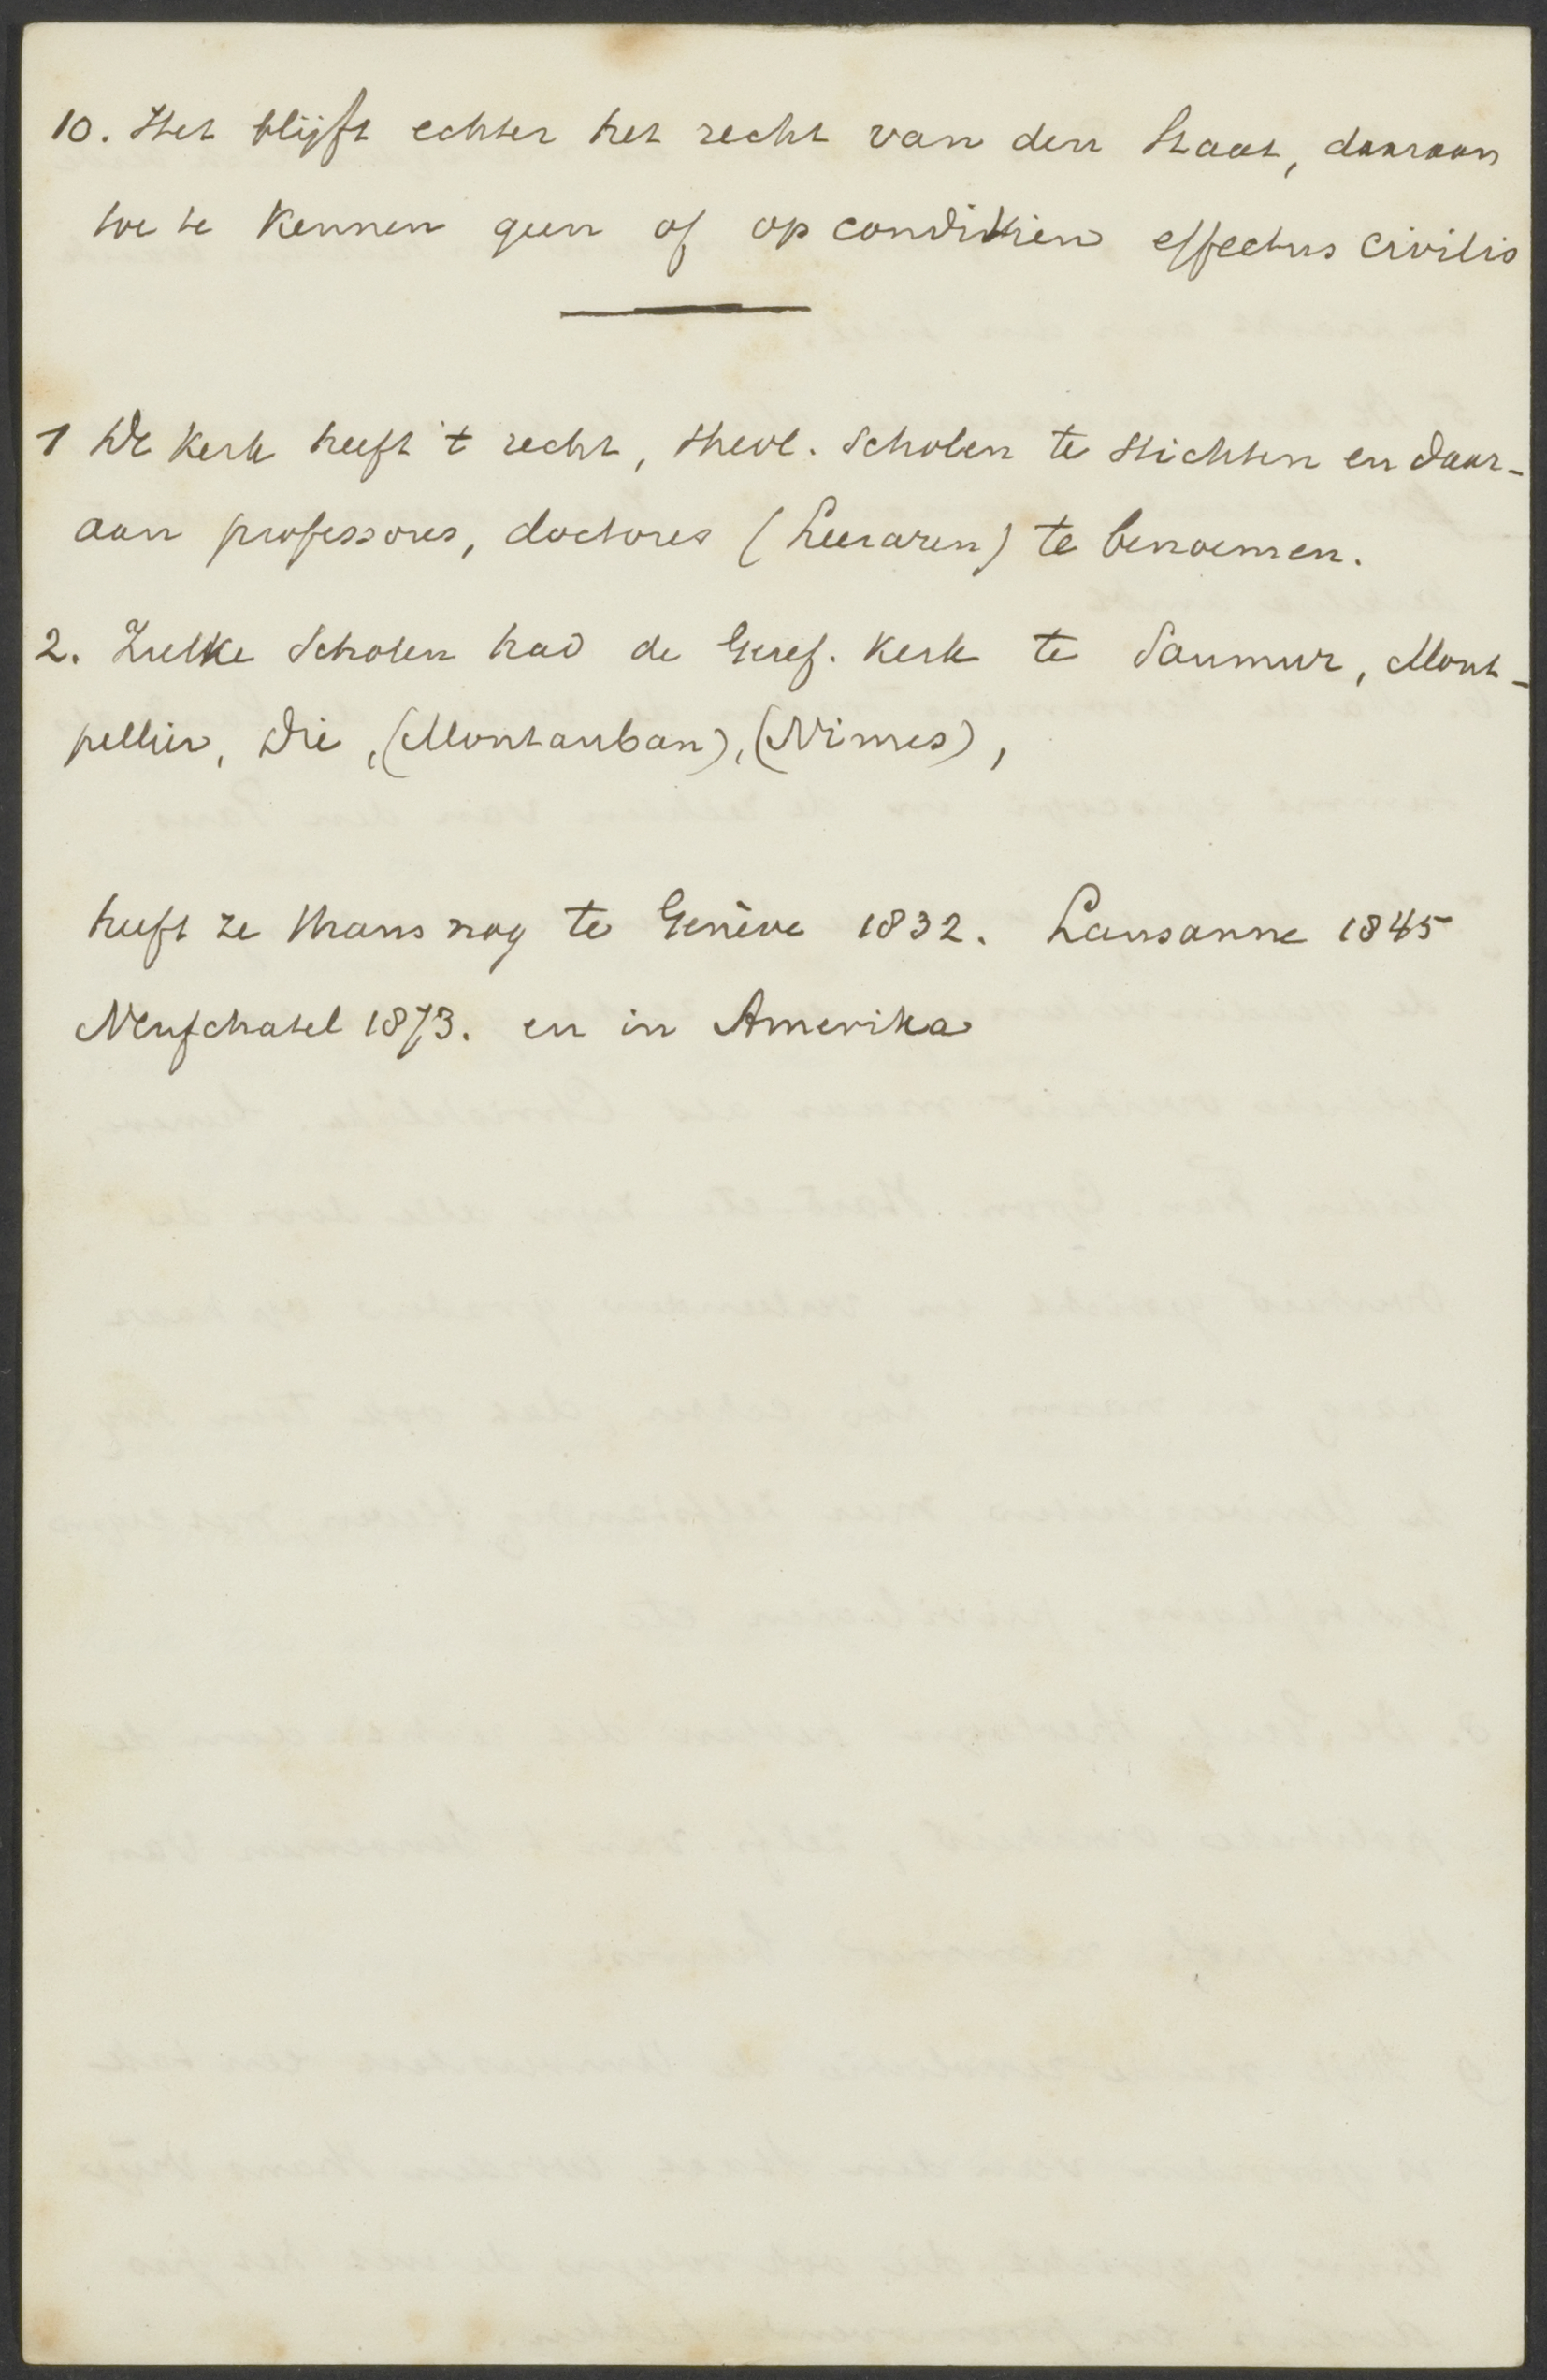 10. Het blijft echter het recht van den Staat, daaraan
toe te kennen geen of op conditiën effectus civilis
1 De Kerk heeft 't recht, theol. Scholen te stichten en daar-
aan professores, doctores (Leeraren) te benoemen.
2. Zulke Scholen had de Geref. Kerk te Saumur, Mont-
pellier, Die, (Montauban), (Nimes),
heeft ze thans nog te Genève 1832. Lausanne 1845
Neufchatel 1873. en in Amerika